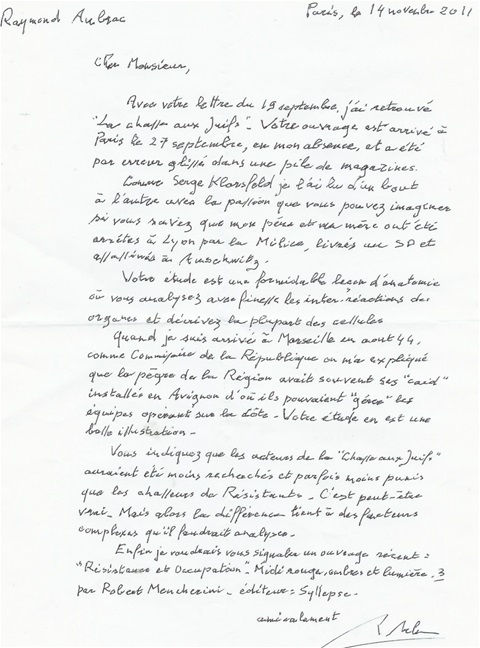 Raymond Aubrac
Paris, le 14 novembre 2011
Cher Monsieur,
Avec votre lettre du 19 septembre, j'ai retrouvé
"La chasse aux Juifs". Votre ouvrage est arrivé à
Paris le 27 septembre, en mon absence, et a été
par erreur glissé dans une pile de magazines.
Comme Serge Klarsfeld je l'ai lu d'un bout
à l'autre avec la passion que vous pouvez imaginer
si vous savez que mon père et ma mère ont été
arrêtés à Lyon par la Milice, livrés au SD et
assassinés à Auschwitz.
Votre étude est une formidable leçon d'anatomie
où vous analysez avec finesse les inter-réactions des
organes et décrivez la plupart des cellules
Quand je suis arrivé à Marseille en aout 44,
comme Commissaire de la République on m'a expliqué
que la pègre de la Région avait souvent ses "caïd"
installés en Avignon d'où ils pouvaient "gérer" les
équipes opérant sur la Côte - Votre étude en est une
belle illustration -
Vous indiquez que les acteurs de la "Chasse aux Juifs"
auraient été moins recherchés et parfois moins punis
que les chasseurs de Résistants - C'est peut-être
vrai - Mais alors la différence tient à des facteurs
complexes qu'il faudrait analyser -
Enfin je voudrais vous signaler un ouvrage récent =
"Résistance et Occupation" - Midi rouge, ombres et lumière. 3
par Robert Mencherini - éditeur = Syllepse -
amicalement